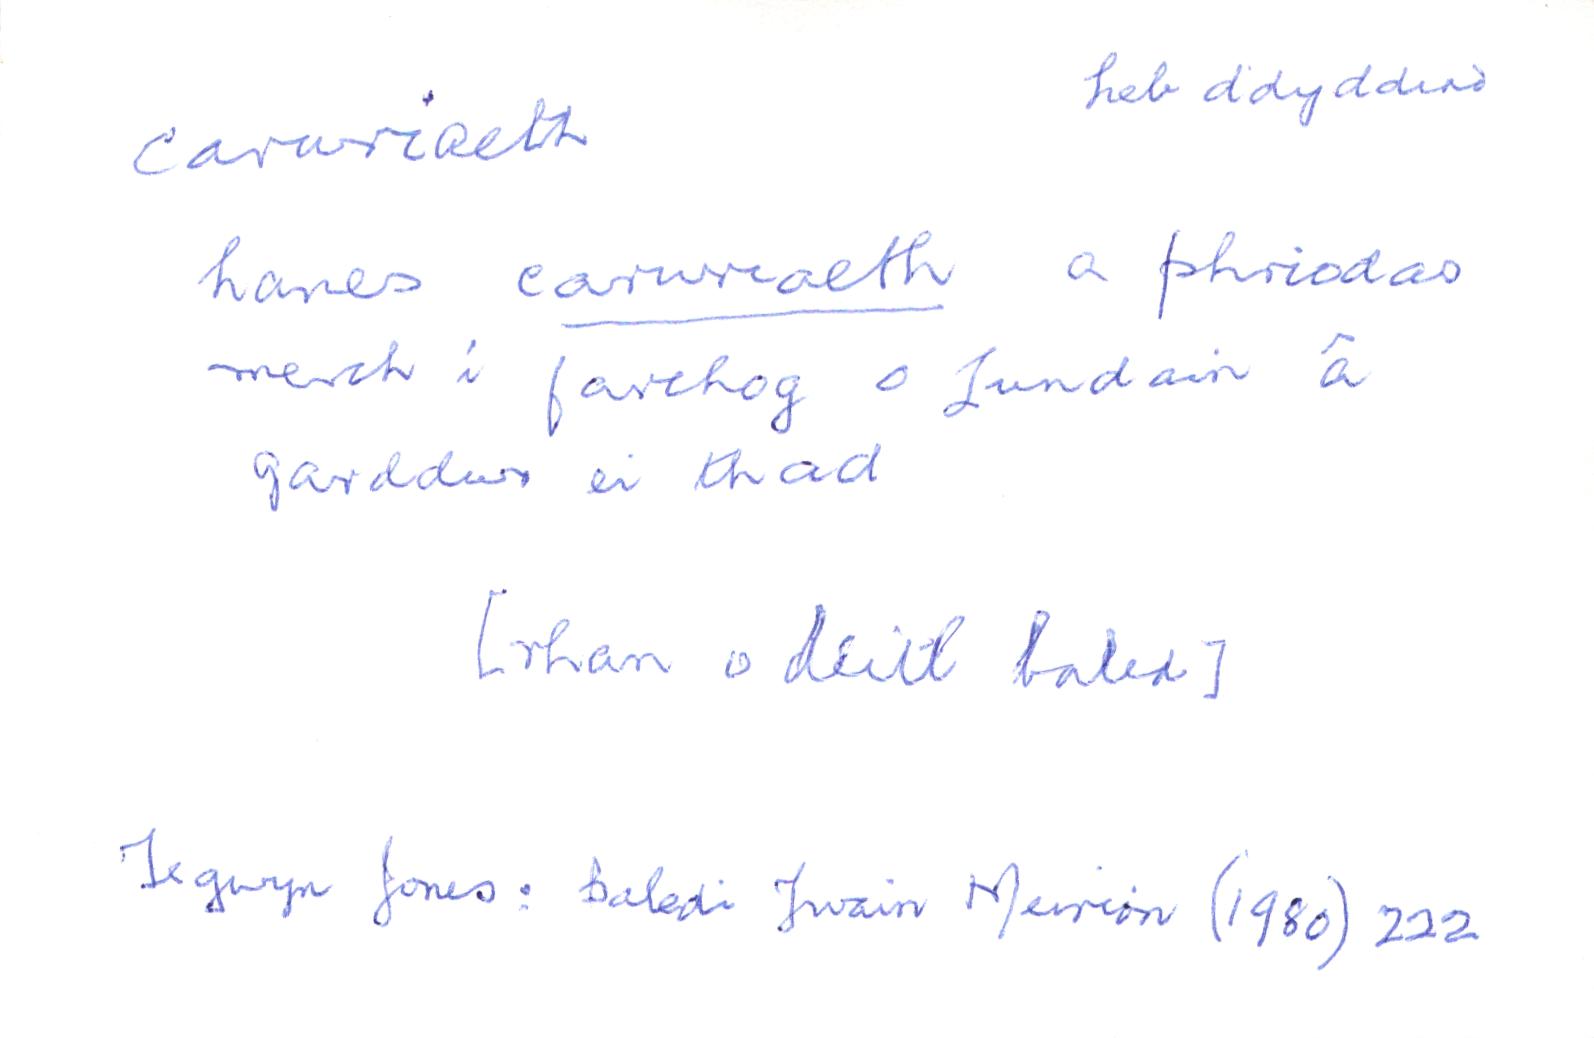 heb ddyddiad
carwriaeth
hanes carwriaeth a phriodas
merch i farchog o Lundain â
garddwr ei thad
[rhan o deitl baled]
Tegwyn Jones: Baledi Ywain Meirion (1980) 222